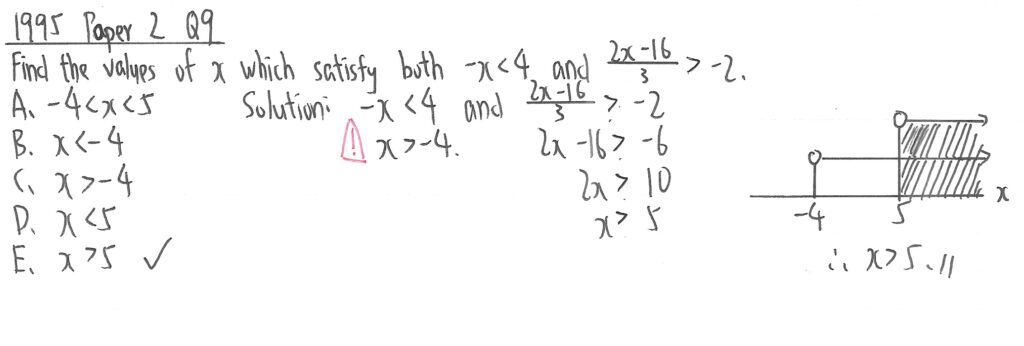 1995 Paper 2 Q9
Find the values of x which satisfy both -x<4 and \frac{2x-16}{3} > -2.
A. -4<x<5
B. x<-4
C. x>-4
D. x<5
E. x>5 ✓
Solution: -x<4 and \frac{2x-16}{3} > -2
! x>-4. 2x-16> -6
2x> 10
x> 5
-4 5 x
∴ x>5.//